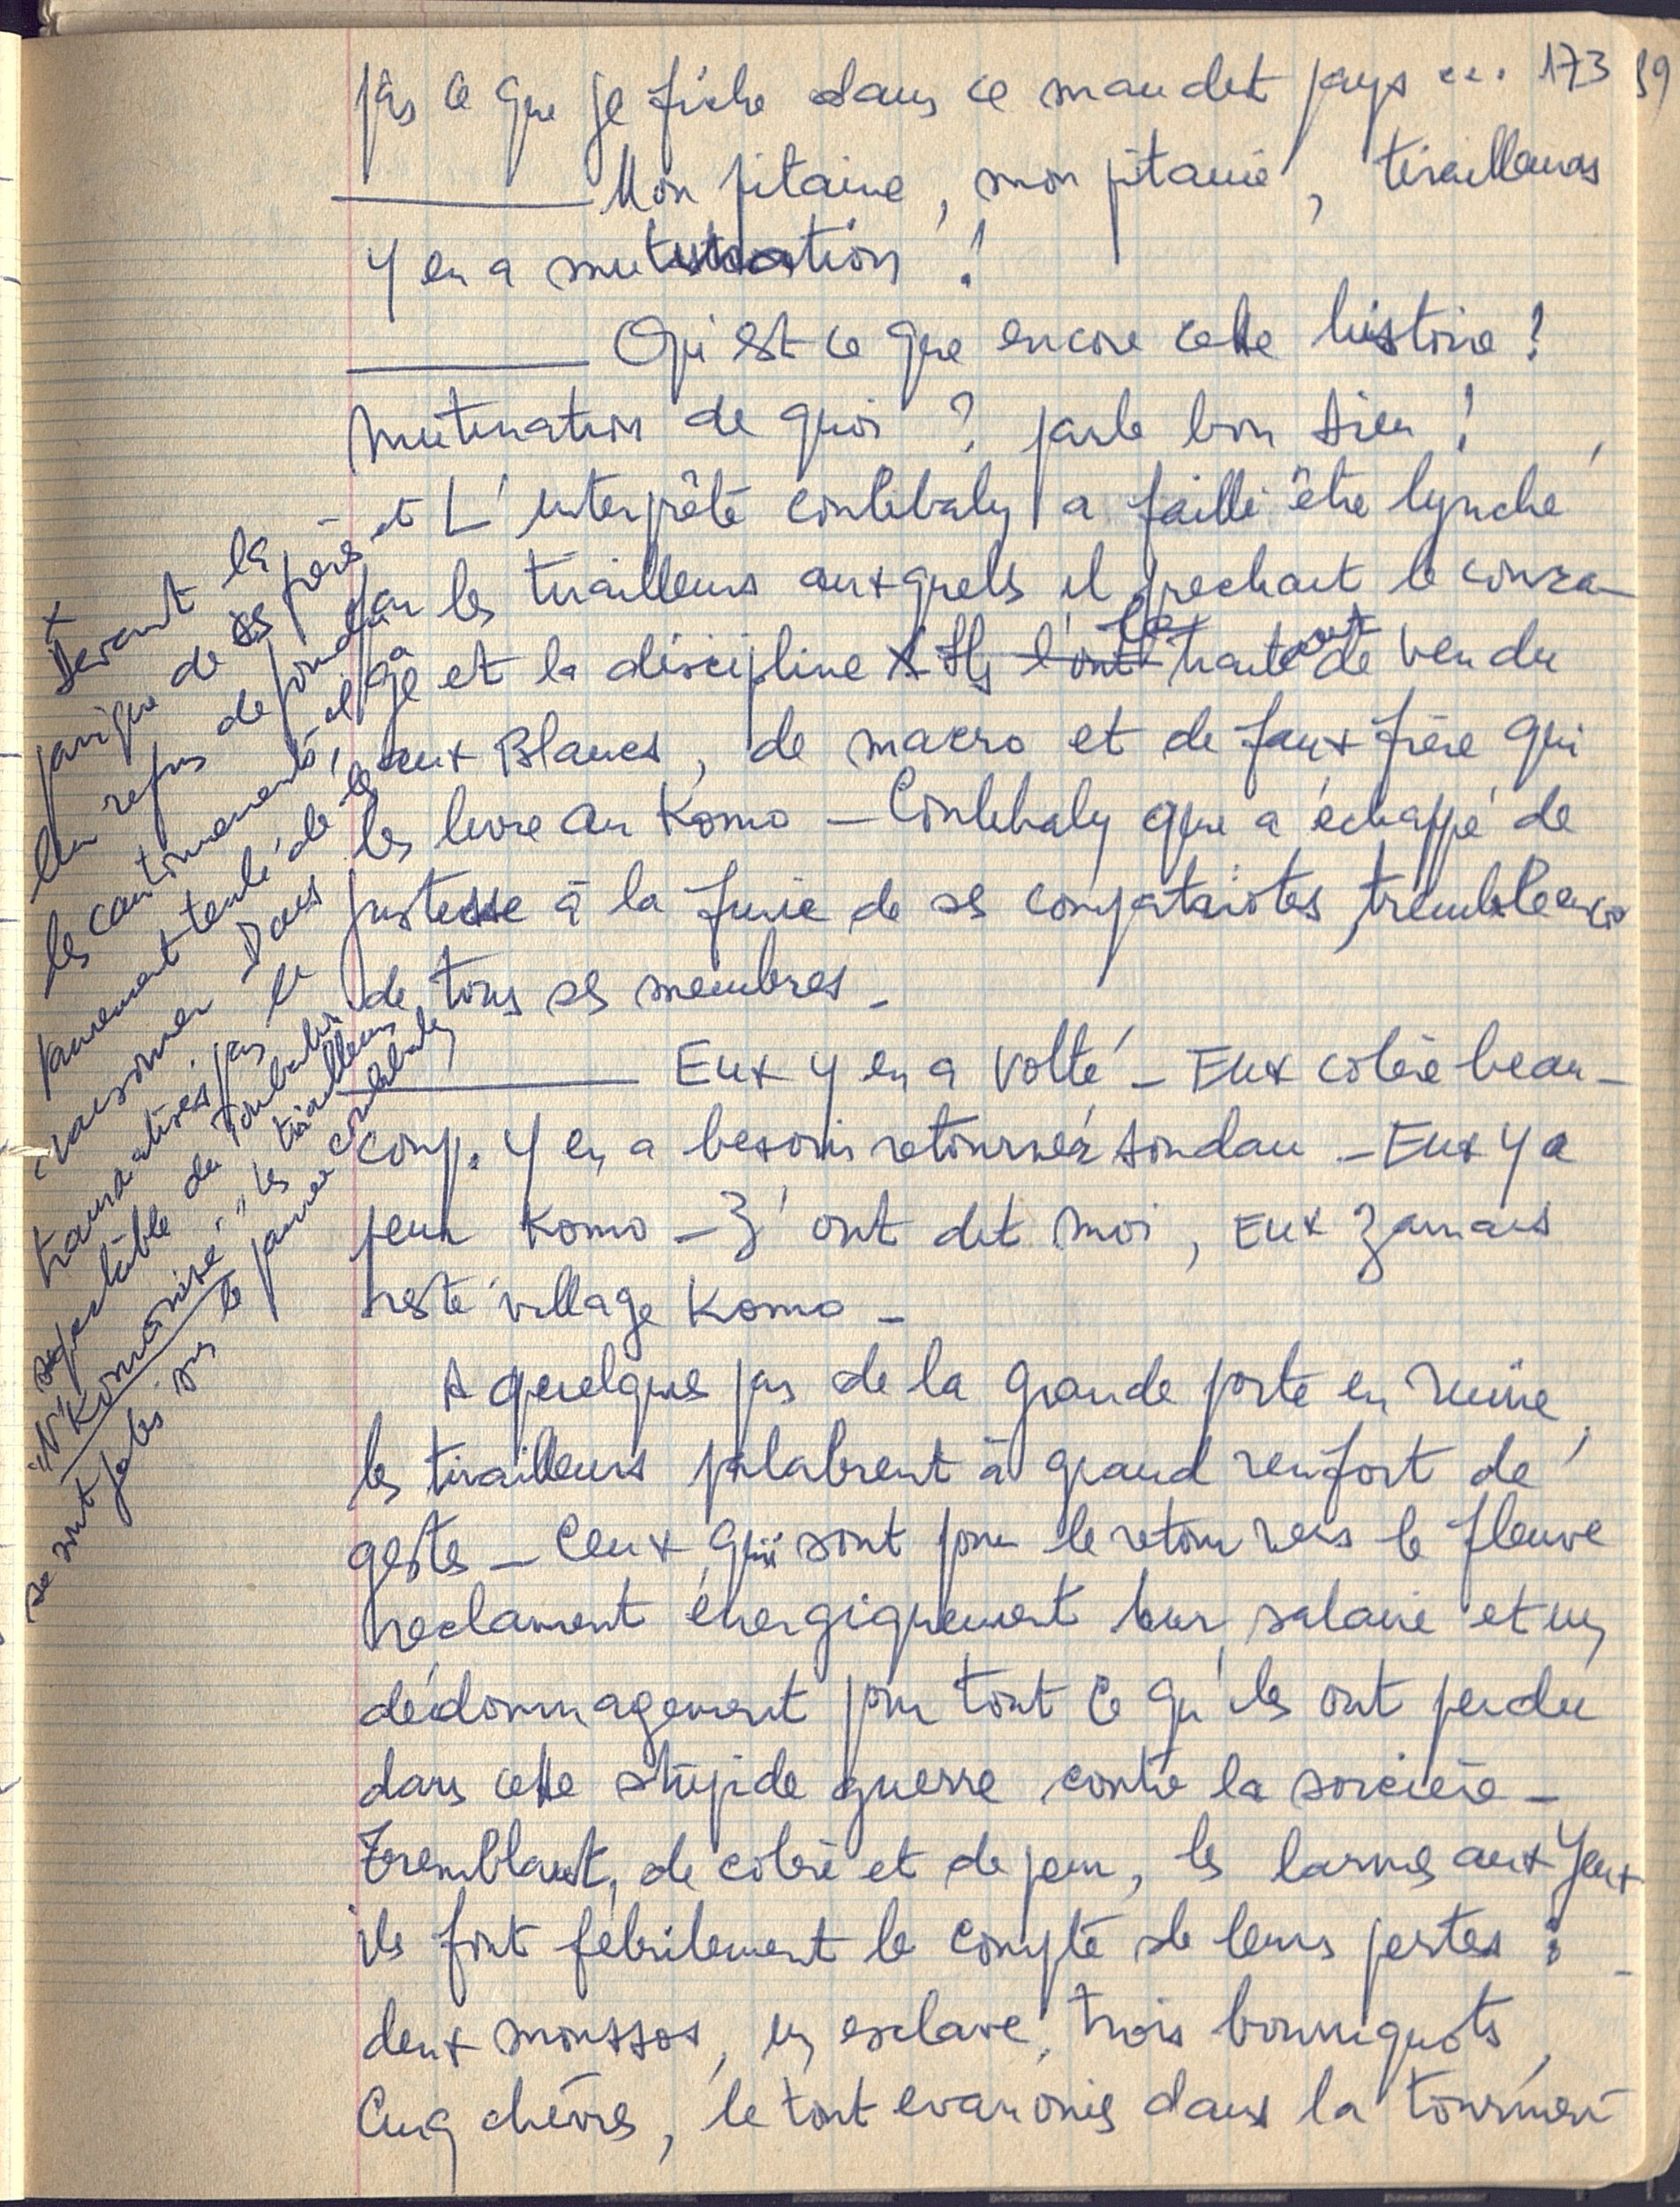 173 89
pas ce que je fiche dans ce maudit pays ...
Mon pitaine, mon pitaine, tirailleurs
y en a mutination !
Qu'est ce que encore cette histoire !
mutination de quoi ? parle bon dieu !
L'interprète Coulibaly a failli être lynché
par les tirailleurs auxquels il prechait le coura-
ge et la discipline X Ils l'ont traité de vendu
aux Blancs, de macro et de faux frère qui
les livre au Komo - Coulibaly que a échappé de
justesse à la furie de ses compatriotes, tremble encore
de tous ses membres -
Eux y en a volté - Eux colère beau-
coup. Y en a besoin retourner Soudan - Eux y a
peur Komo - Z'ont dit moi, Eux Zamais
resté village Komo -
A quelques pas de la grande porte en ruine,
les tirailleurs palabrent à grand renfort de
gestes - Ceux qui sont pour le retour vers le fleuve
reclament énergiquement leur salaire et un
dédommagement pour tout ce qu'ils ont perdu
dans cette stupide guerre contre la sorcière -
Tremblant, de colère et de peur, les larmes aux yeux
ils font fébrilement le compte de leurs pertes :
deux moussos, un esclave, trois bourriquots,
Cinq chèvres, le tout evanouis dans la tourmen-
x
Devant la
panique de ses pairs et
leur refus de
les cantonnements, il a
vainement tenté de les
raisonner Dans
traumatisés par le
spectacle du Toubabou
"N'Komonisé", les tirailleurs
se sont jetés sur le pauvre Coulibaly